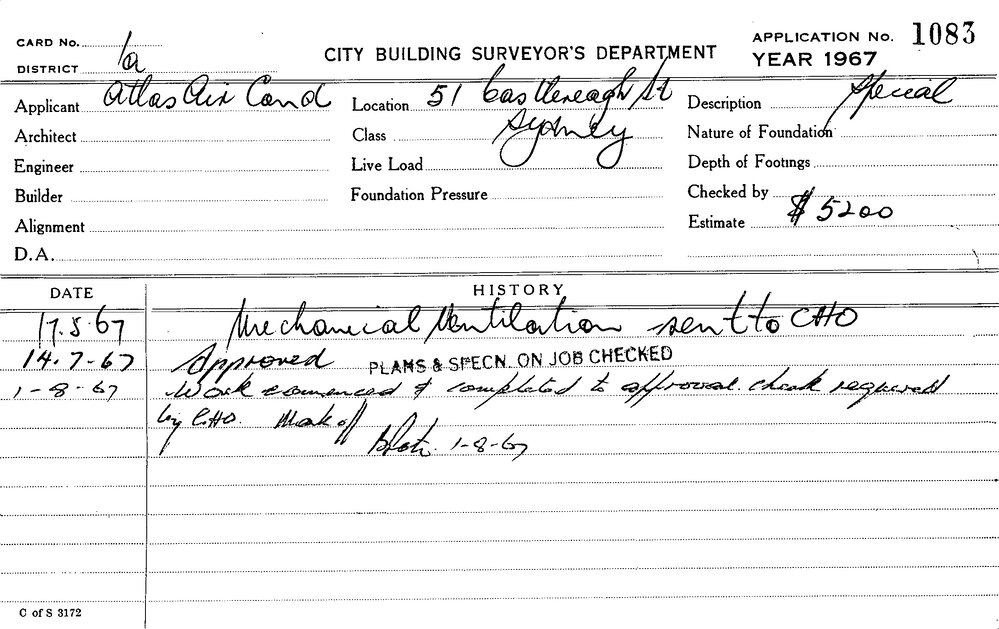 CARD No.
DISTRICT 1a
CITY BUILDING SURVEYOR'S DEPARTMENT
APPLICATION No. 1083
YEAR 1967
Applicant Atlas Air Cond
Location 51 Castlereagh St
Sydney
Description Special
Architect
Class
Nature of Foundation
Engineer
Live Load
Depth of Footings
Builder
Foundation Pressure
Checked by
Alignment
Estimate $5200
D.A.
DATE HISTORY
17.5.67 Mechanical Ventilation sent to CHO
14.7-67 Approved PLANS & SPECN. ON JOB CHECKED
1-8-67 Work commenced & completed to approval. check required
by CHO. Mark off
1-8-67
C of S 3172